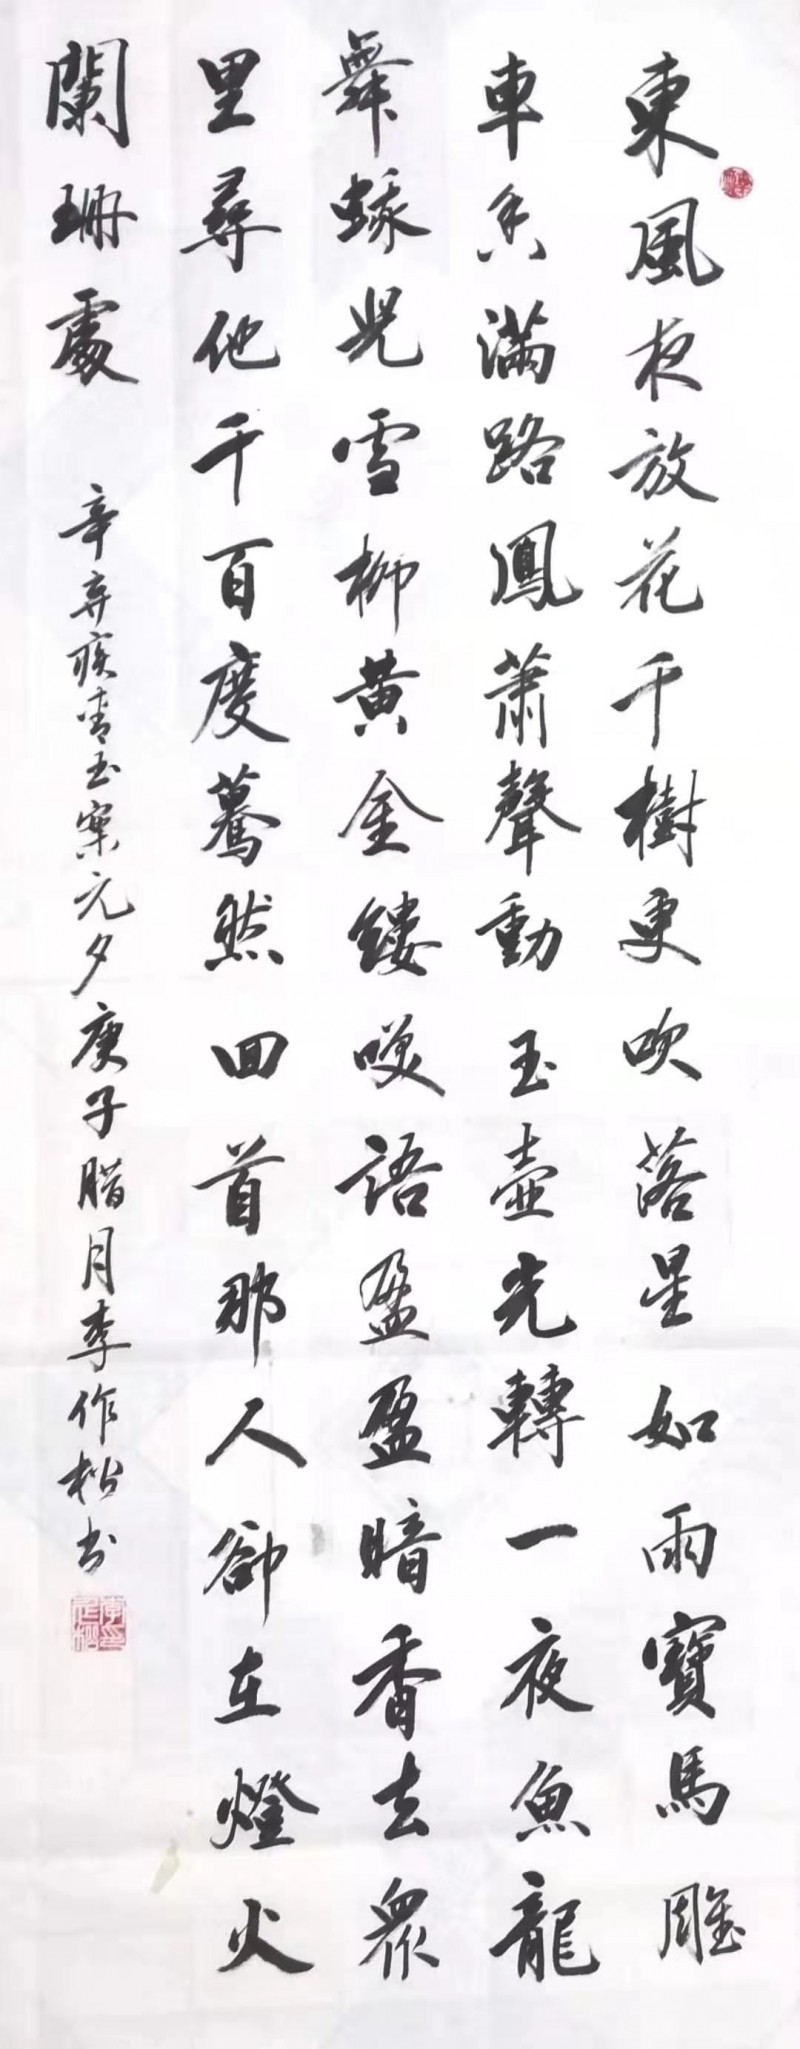 東風夜放花千樹更吹落星如雨寶馬雕
車香滿路鳳蕭聲動玉壺光轉一夜魚龍
舞蛾兒雪柳黄金縷笑語盈盈暗香去衆
里尋他千百度驀然回首那人卻在燈火
闌珊處
辛弃疾青玉案元夕庚子腊月李作松书